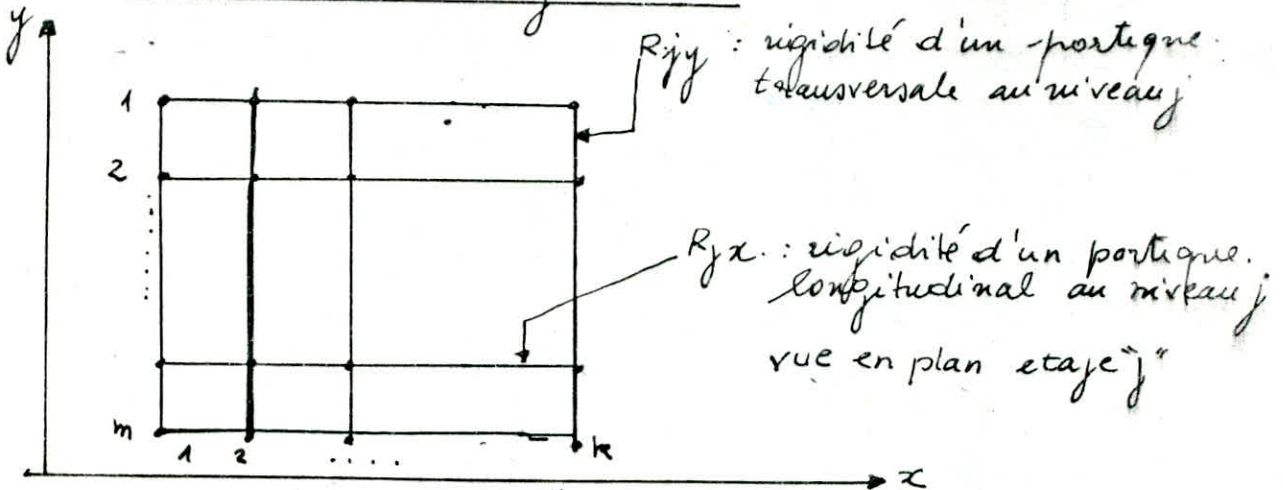 y
Rjy : rigidité d'un portique.
transversale au niveau j
1
2
Rjx. : rigidité d'un portique.
longitudinal au niveau j
vue en plan etaje "j"
m
1 2 .... k
x